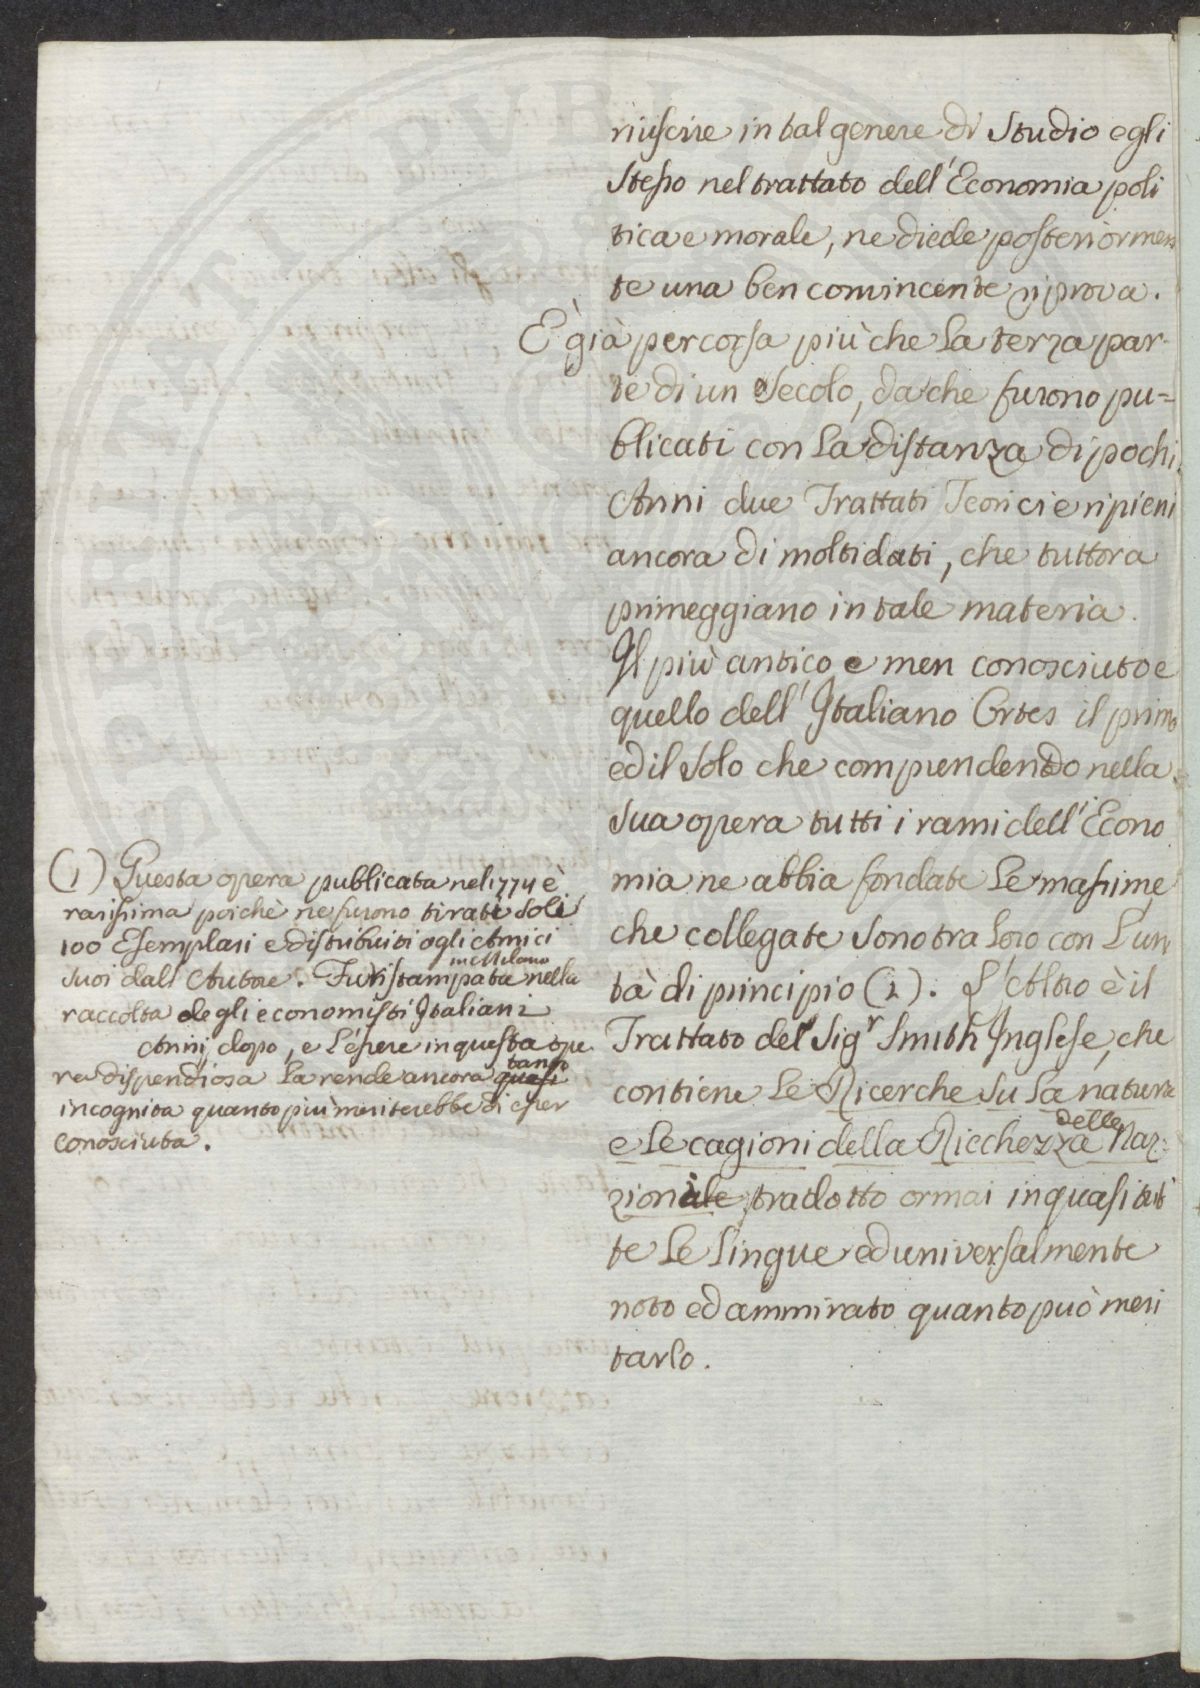 riuscire in tal genere di Studio egli
Stesso nel trattato dell'Economia poli
tica e morale, ne diede posteriormen
te una ben convincente riprova.
È già percorsa più che la terza par-
te di un Secolo, da che furono pu=
blicati con la distanza di pochi
Anni due Trattati Teorici e ripieni
ancora di molti dati, che tuttora
primeggiano in tale materia.
Il più antico e men conosciuto e
quello dell'Italiano Ortes il primo
ed il Solo che comprendendo nella
Sua opera tutti i rami dell'Econo
mia ne abbia fondate le massime,
che collegate Sono tra loro con l'uni
tà di principio (1). L'Altro è il
Trattato del Sigr Smith Inglese, che
contiene le Ricerche su la natura
e le cagioni della Ricchezza delle Naz-
zionale tradotto ormai in quasi tut
te le lingue ed universalmente
noto ed ammirato quanto può meri
tarlo.
(1) Questa opera publicata nel 1774 è
rarissima poichè ne furono tirati Soli
100 Esemplari e distribuiti agli Amici
Suoi dall'Autore. Fù ristampata in Milano nella
raccolta degli economisti Italiani
Anni dopo, e l'essere in questa ope
ra dispendiosa la rende ancora quasi tanto
incognita quanto più meriterebbe di esser
conosciuta.